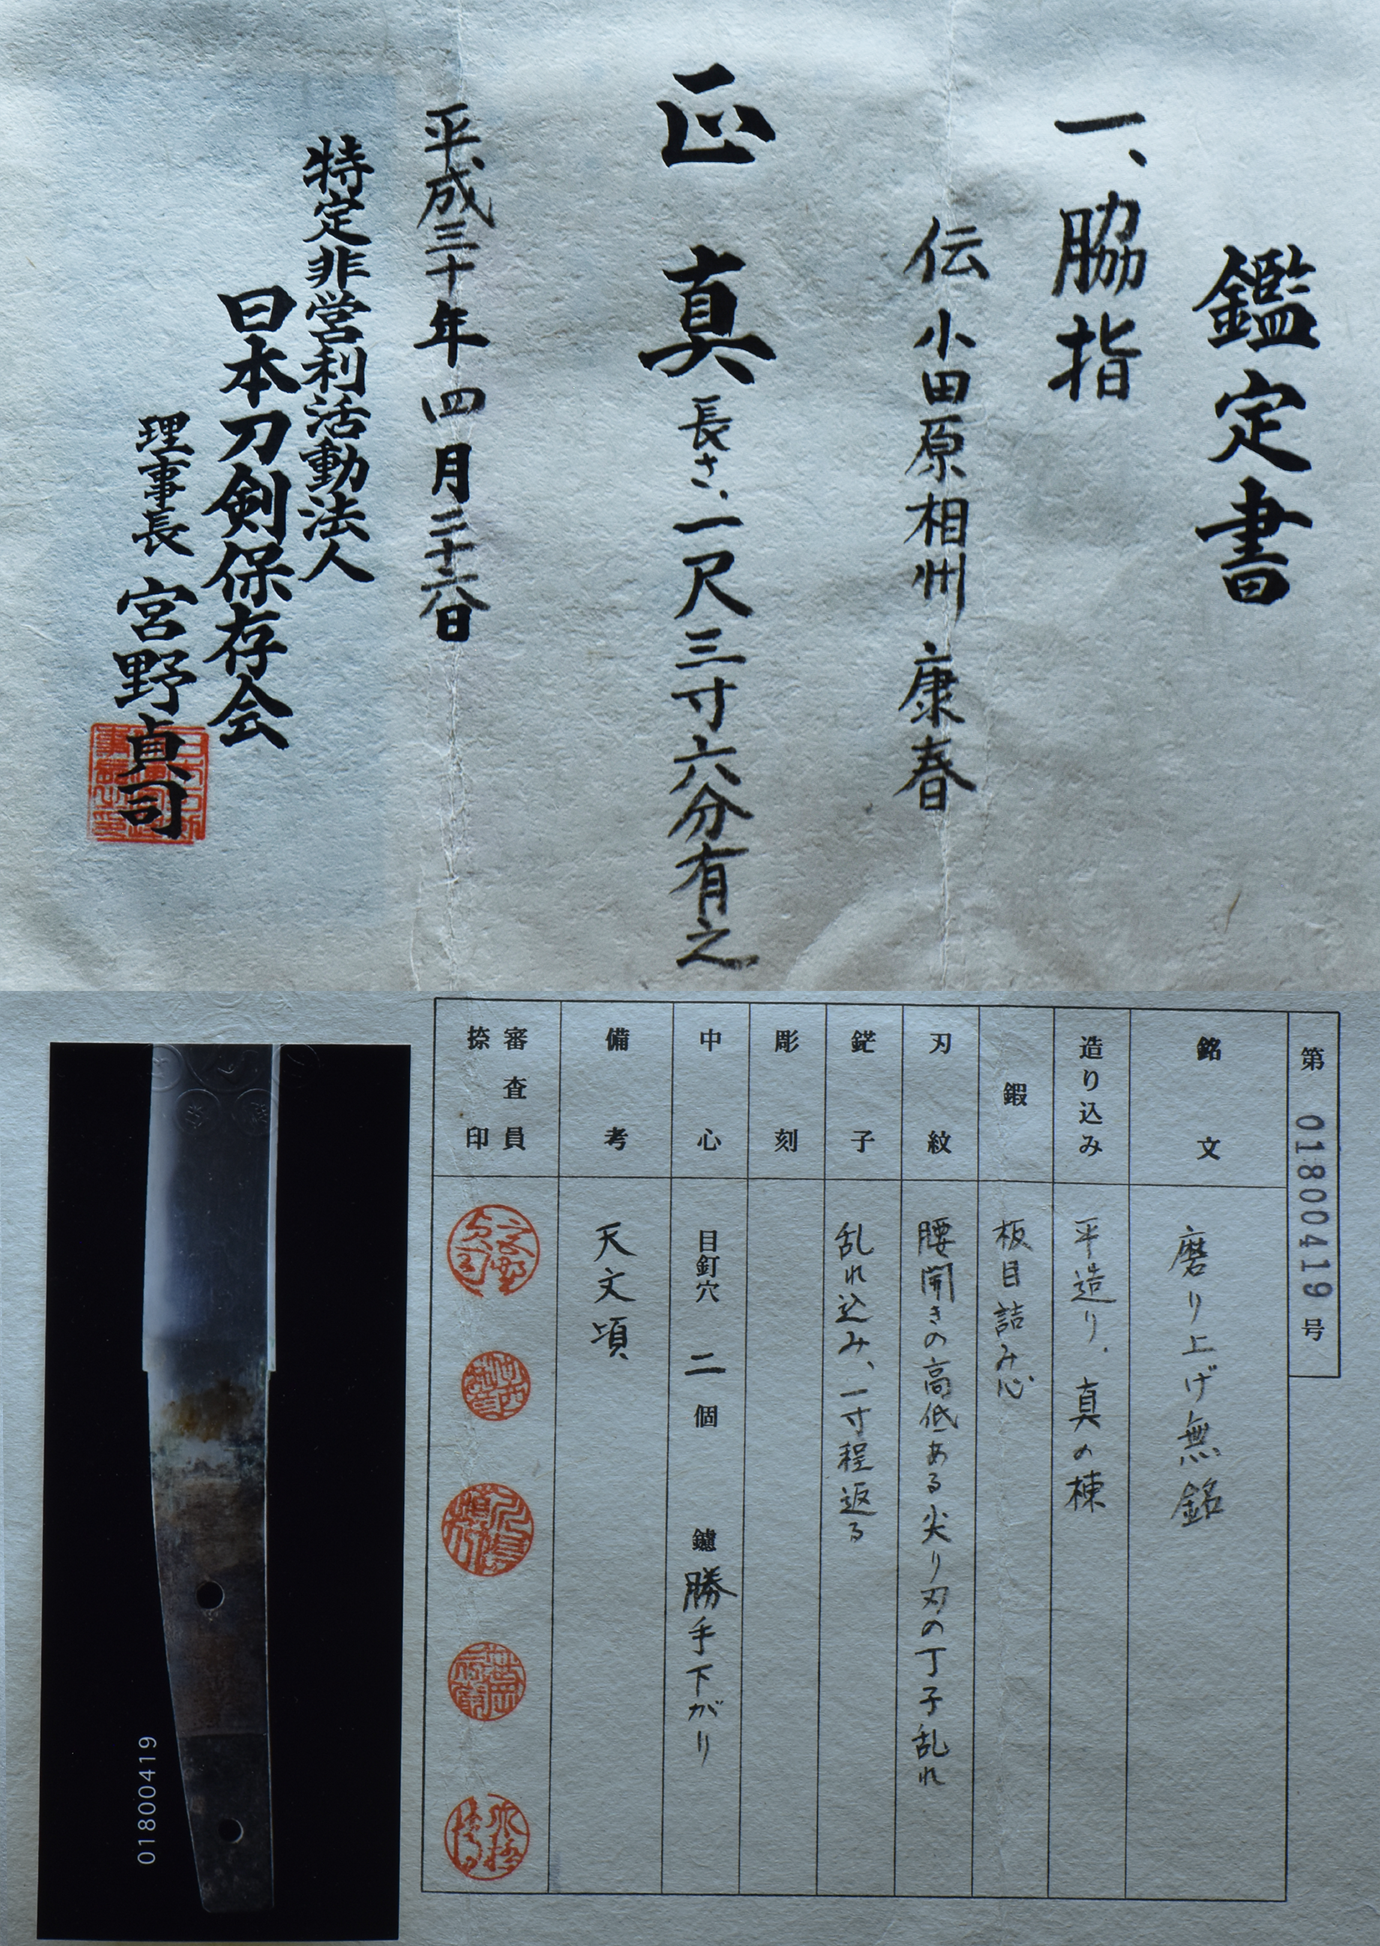 鑑定書
一、脇指
伝 小田原相州 康春
正真 長さ、一尺三寸六分有之
平成三十年四月二十六日
特定非営利活動法人
日本刀剣保存会
理事長 宮野貞司
第 01800419 号
銘文
磨り上げ無銘
造り込み
平造り、真の棟
鍜
板目詰み心
刃紋
腰開きの高低ある尖り刃の丁子乱れ
鋩子
乱れ込み、一寸程返る
彫刻
中心
目釘穴 二 個 鑢 勝手下がり
備考
天文頃
審査員
捺印
01800419